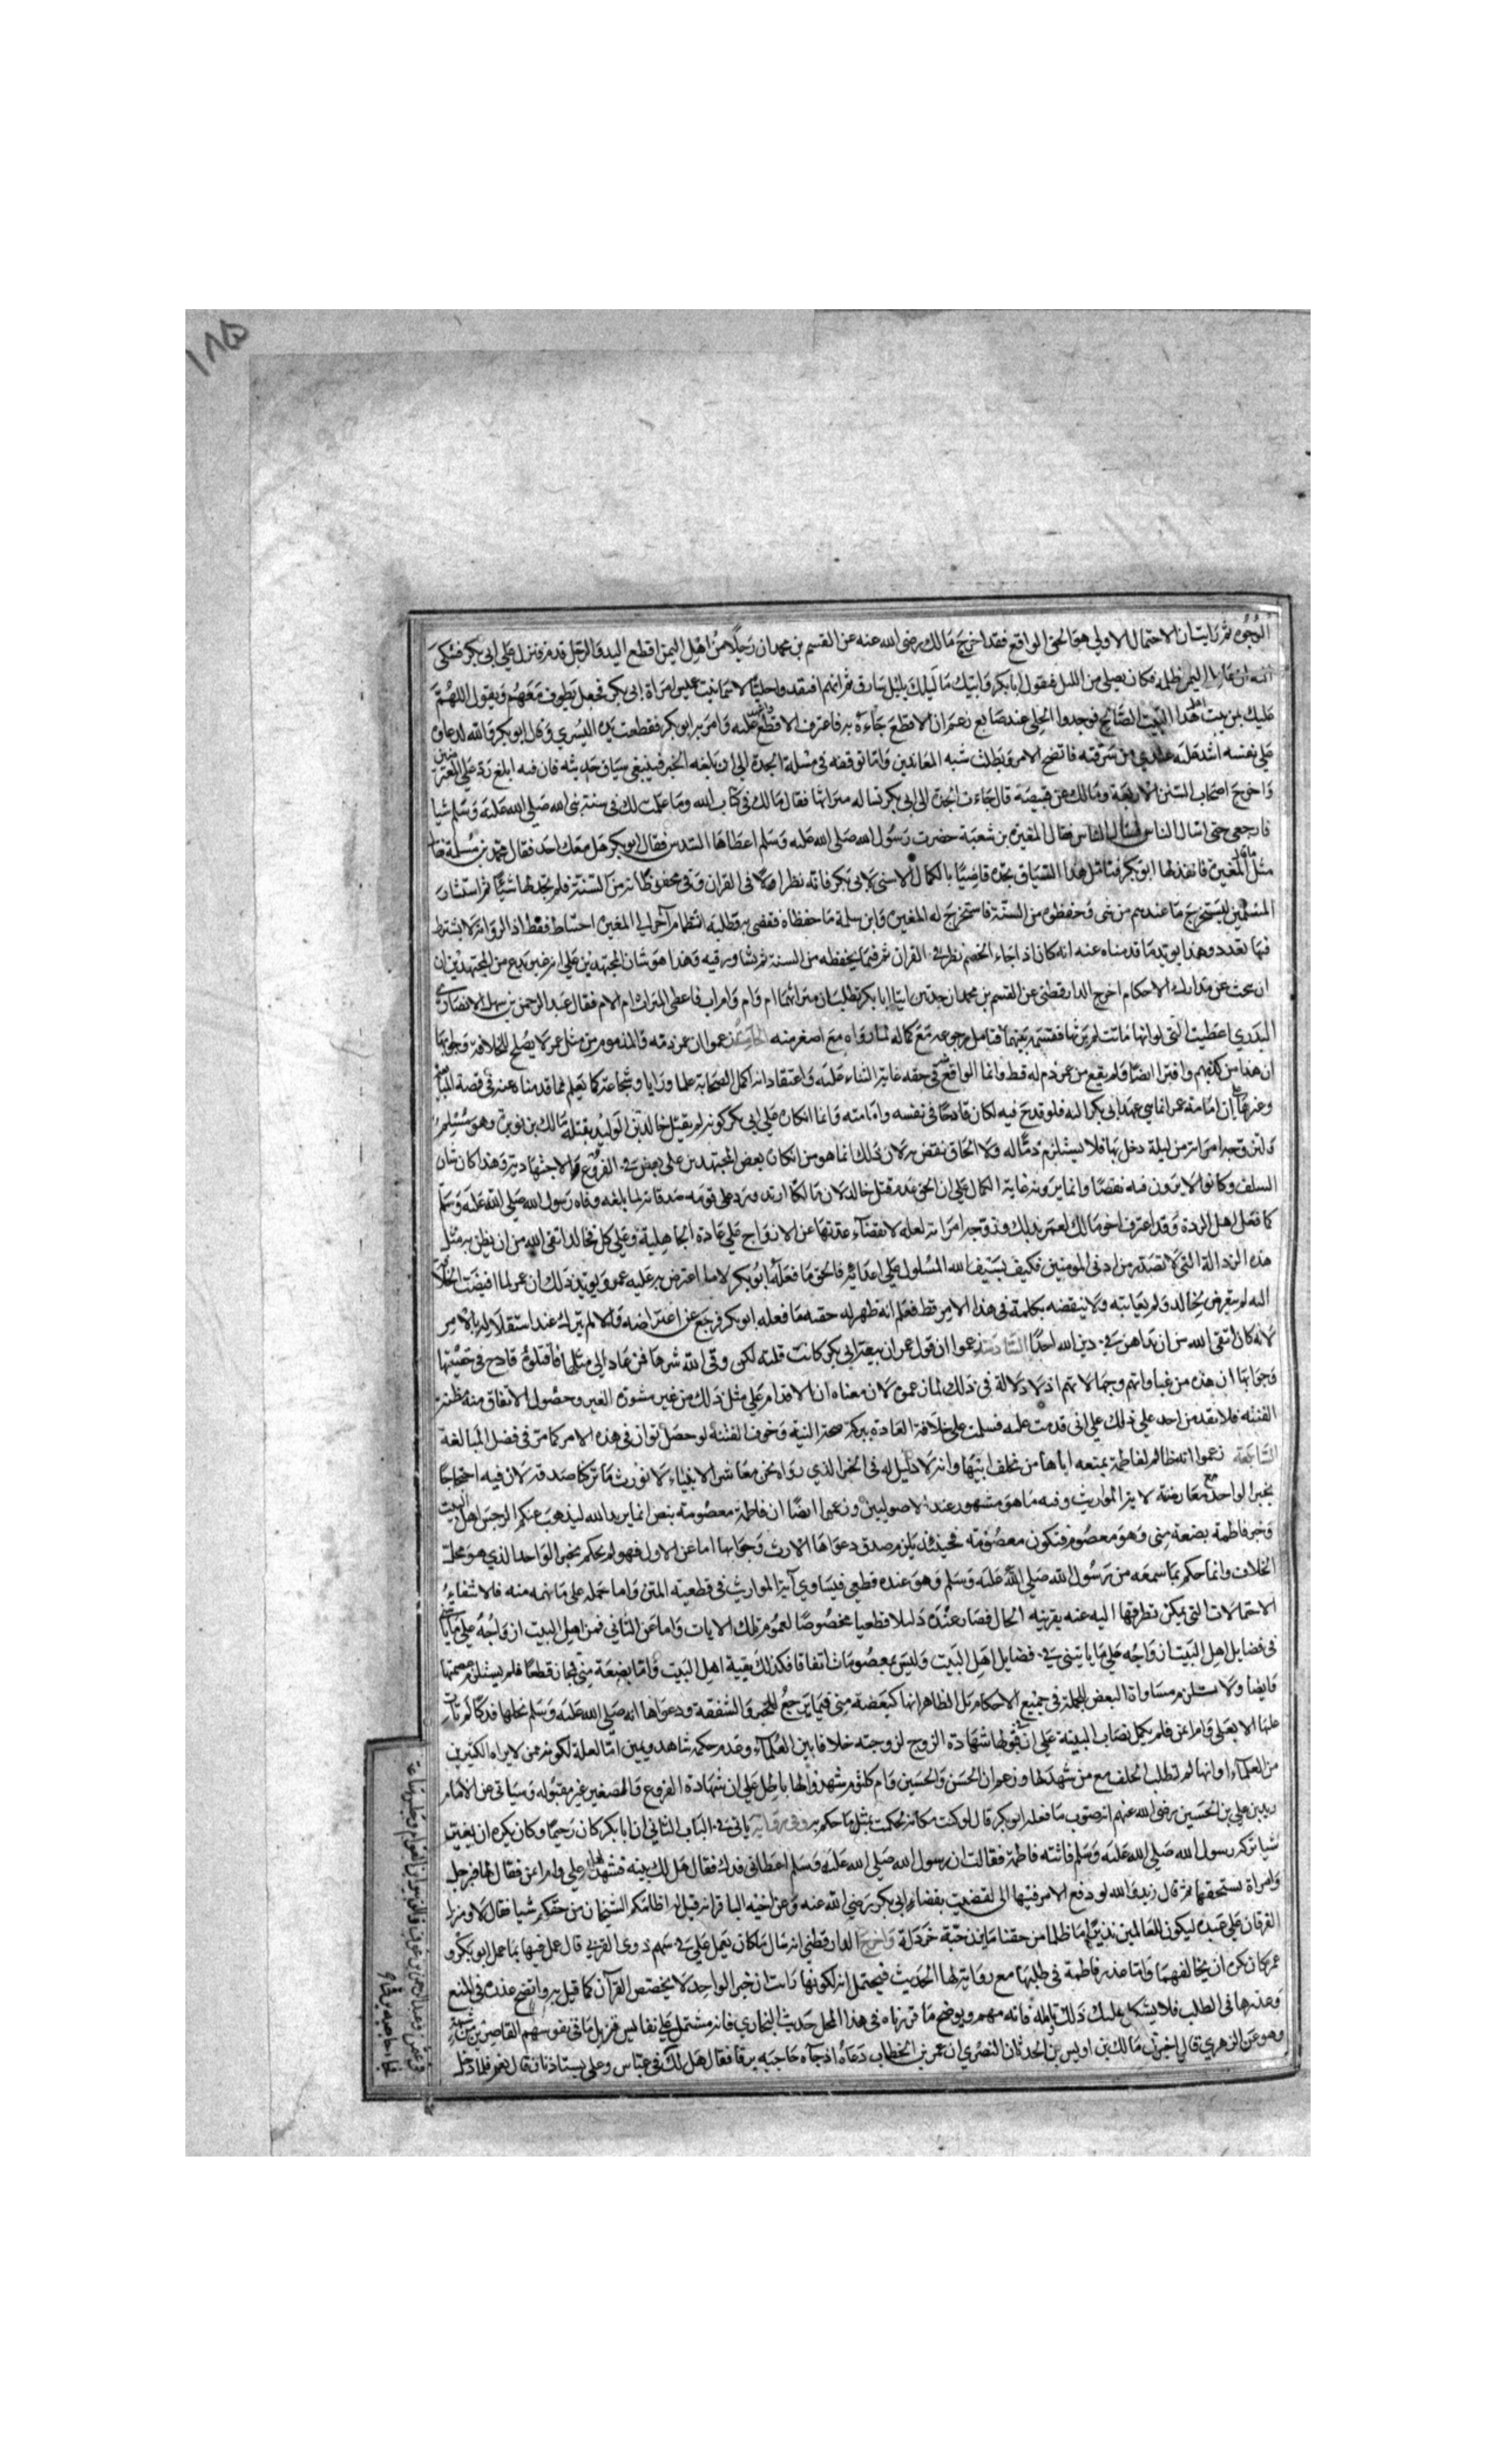 ١٨٥
الوجوه ثم رايت ان الاحتمال الاولى هو الحق الواقع فقد اخرج مالك رضى الله عنه عن القسم بن محمد ان رجلا من اهل اليمن اقطع اليد والرجل قدم فنزل على ابى بكر فشكى
اليه ان عامل اليمن ظلمه فكان يصلى من الليل فيقول ابا بكر وابيك ما ليلك بليل سارق ثم انهم افتقدوا حليا لاسما بنت عميس امراة ابى بكر فجعل يطوف معهم ويقول اللهم
عليك بمن بيت اهل هذا البيت الصالح فوجدوا الحلى عند صايغ زعم ان الاقطع جاءه به فاعترف الاقطع او شهد عليه وامر به ابو بكر فقطعت يده اليسرى وقال ابو بكر والله لدعاوه
على نفسه اشد عليه عندى من سرقته فاتضح الامر وبطلت شبه المعاندين واما توقفه فى مسئلة الجدة الى ان بلغه الخبر فينبغى سياق حديثه فان فيه ابلغ رد على المعترضين
واخرج اصحاب السنن الاربعة ومالك عن قبيصة قال جاءت الجدة الى ابى بكر تساله ميراثها فقال مالك فى كتاب الله وما علمت لك فى سنة نبى الله صلى الله عليه وسلم شيا
فارجعى حتى اسال الناس فسال الناس فقال المغيرة بن شعبة حضرت رسول الله صلى الله عليه وسلم اعطاها السدس فقال ابو بكر هل معك احد فقال محمد بن مسلمة فقال
مثل ما قال المغيرة فانفذ لها ابو بكر فتامل هذا السياق تجده قاضيا بالكمال الاسنى لابى بكر فانه نظر اولا فى القران وفى محفوظاته من السنة فلم يجد لها شيئا ثم استشار
المسلمين ليستخرج ما عندهم من شى حفظوه من السنة فاستخرج له المغيرة وابن سلمة ما حفظاه فقضى به وطلبه انضمام اخر الى المغيرة احتياط فقط اذ الرواية لا يشترط
فيها تعدد وهذا يويد ما قدمناه عنه انه كان اذا جاءه الخصم نظر فى القران ثم فيما يحفظه من السنة ثم شاور فيه وهذا هو شان المجتهدين على انه غير بدع من المجتهدين ان
ان يبحث عن مدارك الاحكام اخرج الدارقطنى عن القسم بن محمد ان جدتين اتيتا ابا بكر تطلبان ميراثهما ام ام وام اب فاعطى الميراث ام الام فقال عبد الرحمن بن سهل الانصارى
البدرى اعطيت التى لو انها ماتت لم يرثها فقسمه بينهما فتامل رجوعه مع كماله لما رواه مع اصغر منه الخامسة زعموا ان عمر ذمه والمذموم من مثل عمر لا يصلح للخلافة وجوابها
ان هذا من كذبهم وافترائهم ايضا ولم يقع من عمر ذم له قط وانما الواقع منه فى حقه غاية الثناء عليه واعتقاد انه اكمل الصحابة علما ورايا وشجاعة كما يعلم مما قدمناه عنه فى قصة المبايعة
وغيرها على ان امامة عمر انما هى بعهد ابى بكر اليه فلو قدح فيه لكان قادحا فى نفسه وامامته واما انكاره على ابى بكر كونه لم يقتل خالد بن الوليد بقتله مالك بن نويرة وهو مسلم
ولتزوجه امراته من ليلة دخل بها فلا يستلزم ذما له ولا الحاق نقص به لان ذلك انما هو من انكار بعض المجتهدين على بعض فى الفروع الاجتهادية وهذا كان شان
السلف وكانوا لا يرون فيه نقصا وانما يرونه غاية الكمال على ان الحق عدم قتل خالد لان مالكا ارتد ورد على قومه صدقاتهم لما بلغه وفاة رسول الله صلى الله عليه وسلم
كما فعل اهل الردة وقد اعترف اخو مالك لعمر بذلك وتزوجه امراته لعله لانقضاء عدتها عن الازواج على عادة الجاهلية وعلى كل فخالد اتقى لله من ان يظن به مثل
هذه الرذالة التى لا تصدر من ادنى المومنين فكيف بسيف الله المسلول على اعدائه فالحق ما فعله ابو بكر لا ما اعترض به عليه عمر ويويد ذلك ان عمر لما افضت الخلافة
اليه لم يتعرض لخالد ولم يعاتبه ولا ينقصه بكلمة فى هذا الامر قط فعلم انه ظهر له حقية ما فعله ابو بكر فرجع عن اعتراضه والا لم يتركه عند استقلاله بالامر
لانه كان اتقى لله من ان يداهن فى دين الله احدا السادسة زعموا ان قول عمر ان بيعة ابى بكر كانت فلتة لكن وقى الله شرها فمن عاد الى مثلها فاقتلوه قادح فى حقيتها
وجوابها ان هذه من غباواتهم وجهالاتهم اذ لا دلالة فى ذلك لما زعموه لان معناه ان الاقدام على مثل ذلك من غير مشورة الغير وحصول الاتفاق منه مظنة
الفتنة فلا يقدمن احد على ذلك على انى قدمت عليه فسلمت على خلاف العادة ببركة صحة النية وخوف الفتنة لو حصل توان فى هذه الامر كما مر فى فضل المبالغة
السابعة زعموا انه ظالم لفاطمة بمنعه اياها من مخلف ابيها وانه لا دليل له فى الخبر الذى رواه نحن معاشر الانبياء لا نورث ما تركنا صدقة لان فيه احتجاجا
بخبر الواحد مع معارضته لاية المواريث وفيه ما هو مشهور عند الاصوليين وزعموا ايضا ان فاطمة معصومة بنص انما يريد الله ليذهب عنكم الرجس اهل البيت
وخبر فاطمة بضعة منى وهو معصوم فتكون معصومة فحينئذ يلزم صدق دعواها الارث وجوابها اما عن الاول فهو لم يحكم بخبر الواحد الذى هو محل
الخلاف وانما حكم بما سمعه من رسول الله صلى الله عليه وسلم وهو عنده قطعى فيساوى اية المواريث فى قطعية المتن واما حمله على ما فهمه منه فلانتفاء
الاحتمالات التى يمكن تطرقها اليه عنه بقرينة الحال فصار عنده دليلا قطعيا مخصوصا لعموم تلك الايات واما عن الثانى فمن اهل البيت ازواجه على ما ياتى
فى فضايل اهل البيت ازواجه على ما ياتى فى فضايل اهل البيت وليس بمعصومات اتفاقا فكذلك بقية اهل البيت واما بضعة منى فمجاز قطعا فلم يستلزم عصمتها
وايضا ولا يستلزم مساواة البعض للجملة فى جميع الاحكام بل الظاهر انها كبضعة منى فيما يرجع للخير والشفقة ودعواها انه صلى الله عليه وسلم نحلها فدكا لم تات
عليها الا بعلى وام ايمن فلم يكمل نصاب البينة على ان فى قبول شهادة الزوج لزوجته خلافا بين العلماء وعدم حكمه بشاهد ويمين اما لعلة لكونه ممن لا يراه الكثيرين
من العلماء او انها لم تطلب الحلف مع من شهد لها وزعم ان الحسن والحسين وام كلثوم شهدوا لها باطل على ان شهادة الفروع والصغير غير مقبولة وسياتى عن الامام
زيد بن على بن الحسين رضى الله عنهم انه صوب ما فعله ابو بكر قال لو كنت مكانه لحكمت بمثل ما حكم به وفى رواية ياتى فى الباب الثانى ان ابا بكر كان رحيما وكان يكره ان يغير
شيا تركه رسول الله صلى الله عليه وسلم فاتته فاطمة فقالت ان رسول الله صلى الله عليه وسلم اعطانى فدك فقال هل لك بينة فشهد لها على وام ايمن فقال لها فبرجل
وامراة تستحقيها ثم قال زيد والله لو دفع الامر فيها الى لقضيت بقضاء ابى بكر رضى الله عنه وعن اخيه الباقر انه قيل له اظلمكم الشيخان من حقكم شيا فقال لا ومنزل
الفرقان على عبده ليكون للعالمين نذيرا ما ظلما من حقنا ما يزن حبة خردلة واخرج الدارقطنى انه سال ما كان يعمل على فى سهم ذوى القربى قال عمل فيها بما عمل ابو بكر و
عمر كان يكره ان يخالفهما واما عذر فاطمة فى طلبها مع روايته لها الحديث فيحتمل انه لكونها رات ان خبر الواحد لا يخصص القرآن كما قيل به واتضح عذره فى المنع
وعذرها فى الطلب فلا يشكل عليك ذلك وتامله فانه مهم ويوضح ما قررناه فى هذا المحل حديث البخارى فانه مشتمل على نفايس تزيل ما فى نفوس القاصرين من شبهة
وهو عن الزهرى قال اخبرنى مالك بن اويس بن الحدثان النصرى ان عمر بن الخطاب دعاه اذ جاءه حاجبه يرفا فقال هل لك فى عباس وعلى يستاذنان قال نعم فلما دخلا